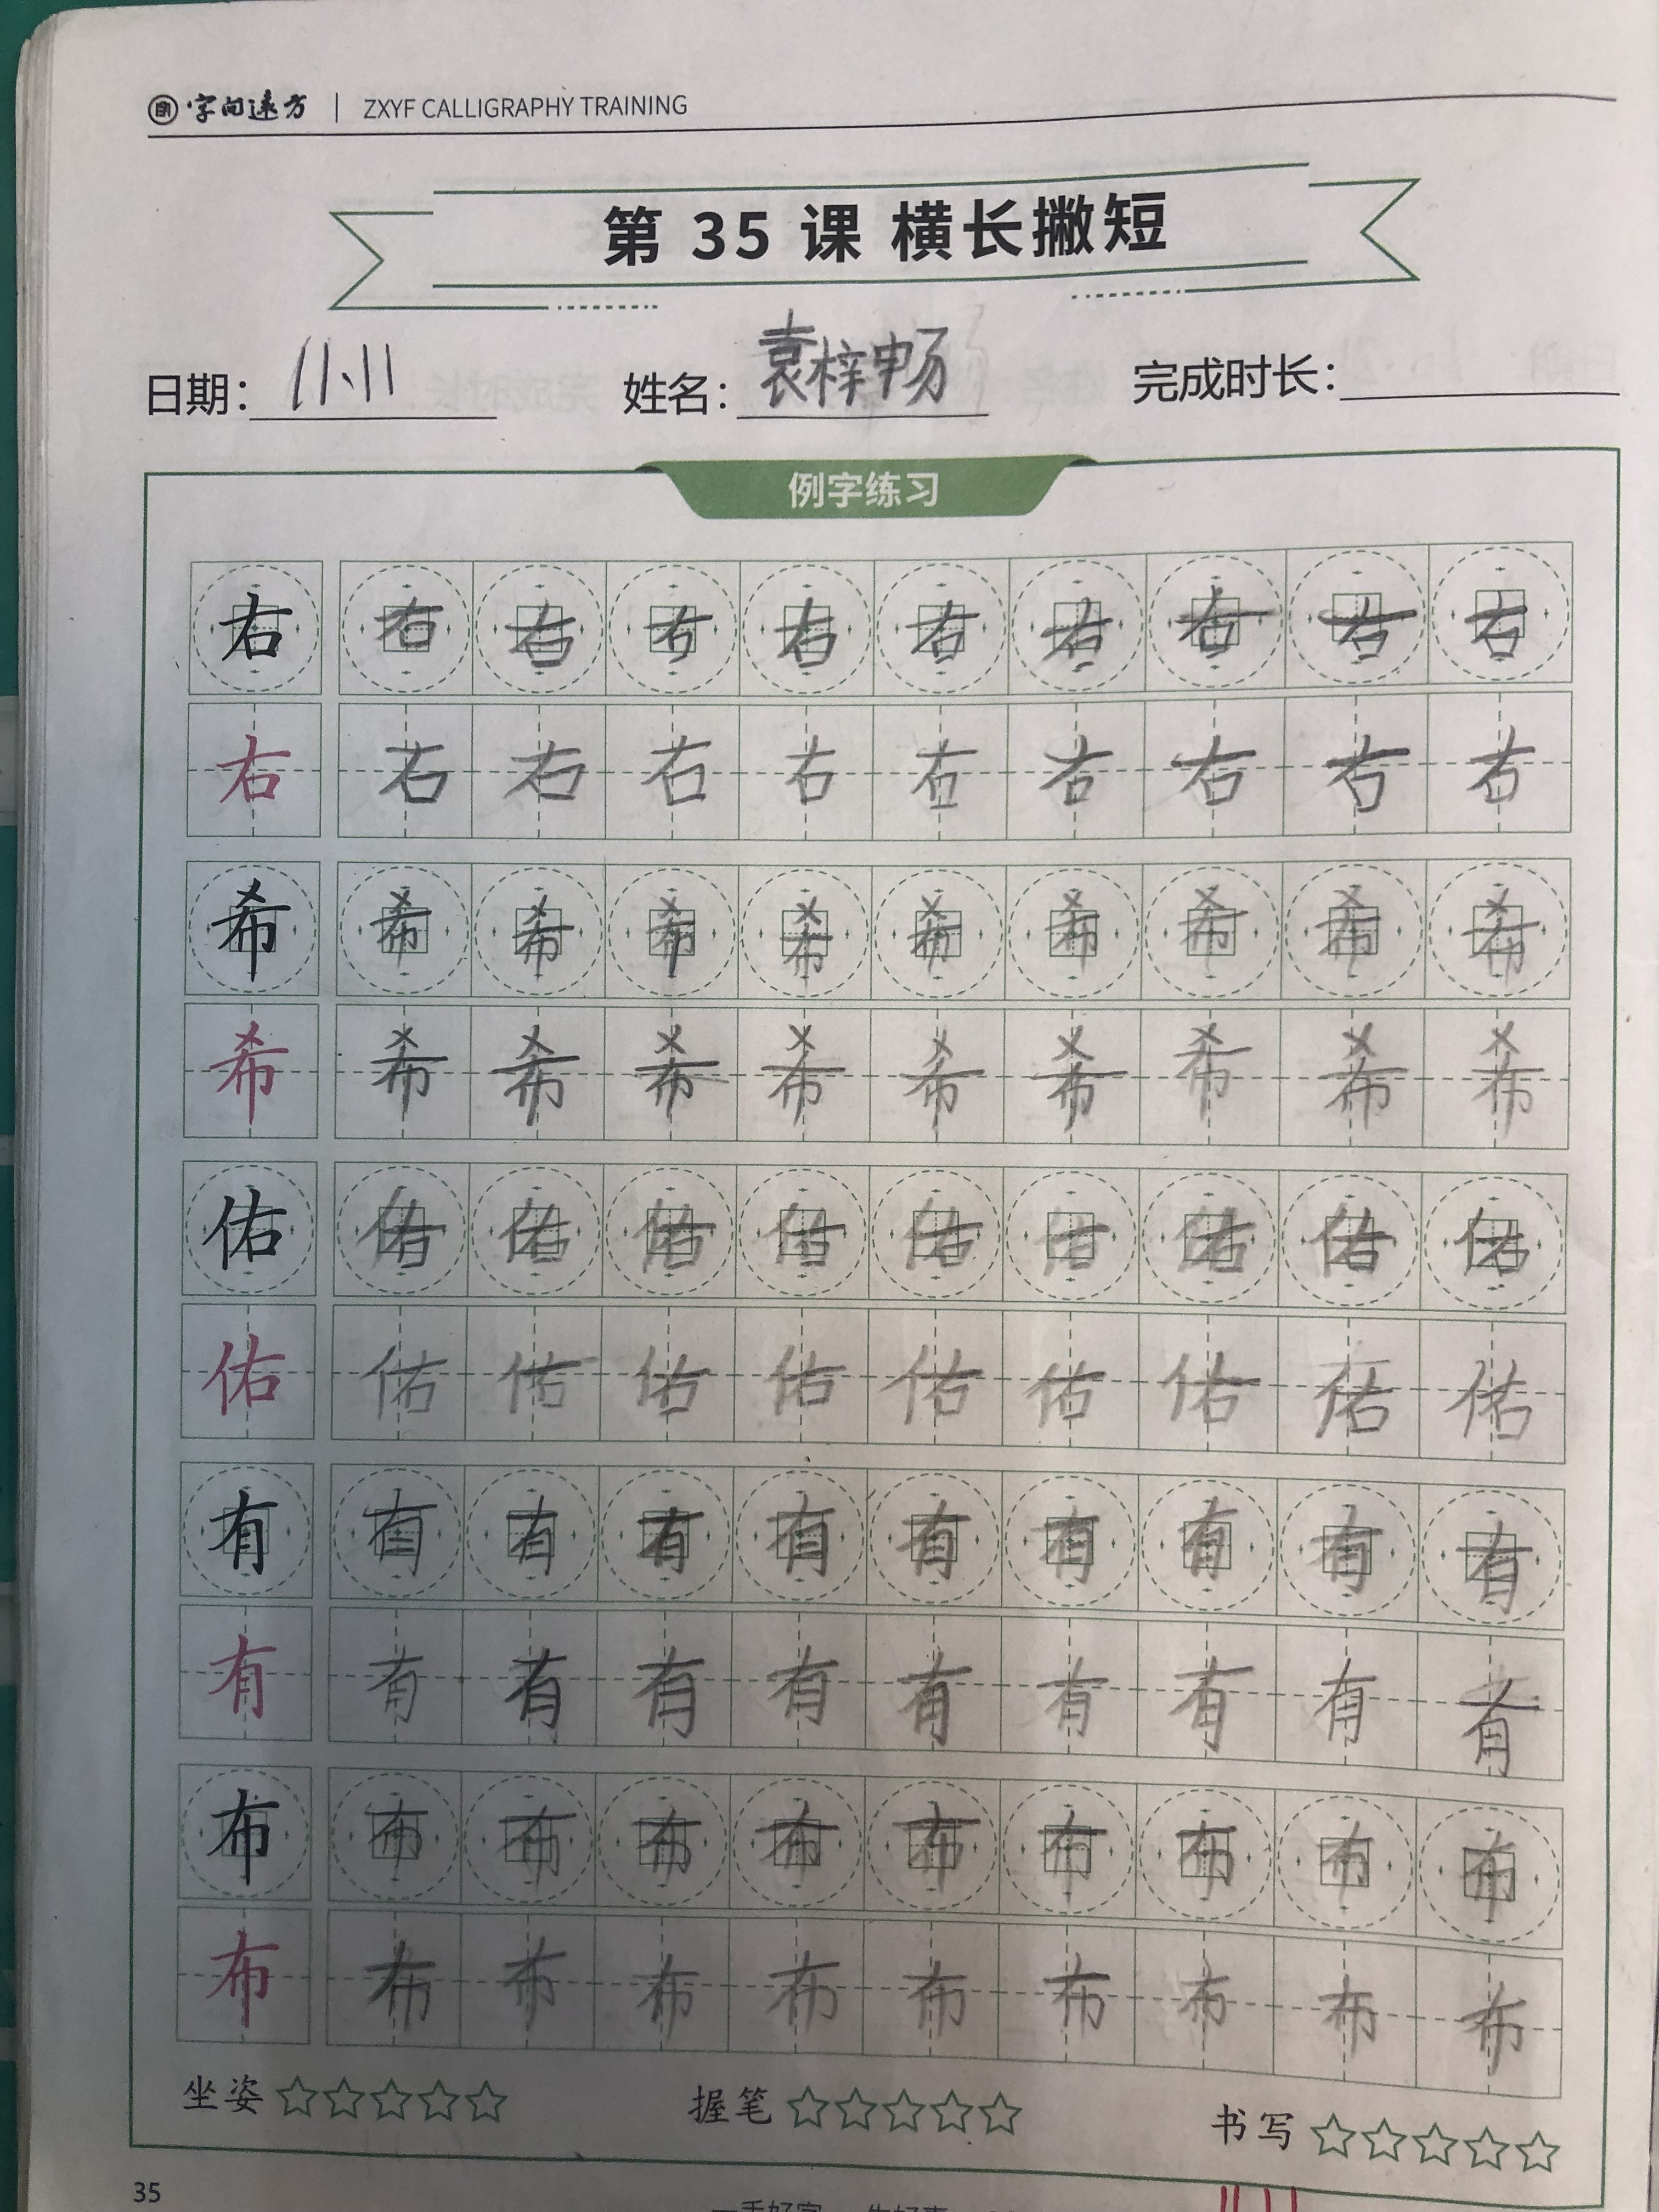 字向远方 | ZXYF CALLIGRAPHY TRAINING
第 35 课 横长撇短
日期: 11.11 姓名: 袁梓畅 完成时长:
例字练习
右 右 右 右 右 右 右 右 右 右
右 右 右 右 右 右 右 右 右 右
希 希 希 希 希 希 希 希 希 希
希 希 希 希 希 希 希 希 希 希
佑 佑 佑 佑 佑 佑 佑 佑 佑 佑
佑 佑 佑 佑 佑 佑 佑 佑 佑 佑
有 有 有 有 有 有 有 有 有 有
有 有 有 有 有 有 有 有 有 有
布 布 布 布 布 布 布 布 布 布
布 布 布 布 布 布 布 布 布 布
坐姿 ☆☆☆☆☆ 握笔 ☆☆☆☆☆ 书写 ☆☆☆☆☆
35